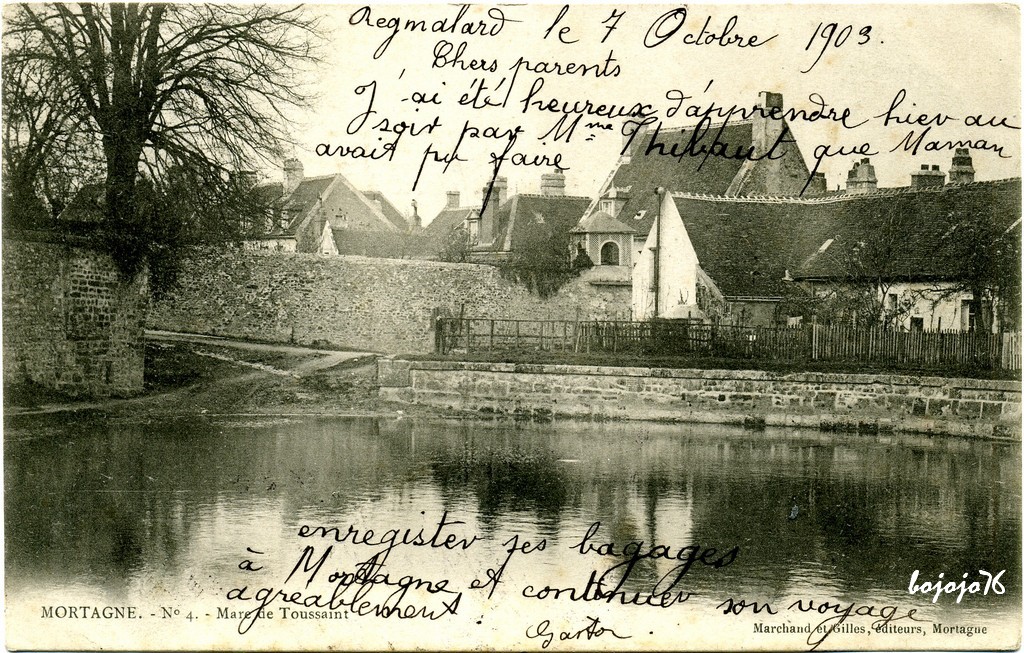 Regmalard le 7 Octobre 1903.
Chers parents
J'ai été heureux d'apprendre hier au
soir par Mme Thibaut que Maman
avait pu faire
enregistrer ses bagages
à Mortagne et continuer son voyage
agreablement.
Gaston.
MORTAGNE. - No 4. - Mare de Toussaint
Marchand et Gilles, éditeurs, Mortagne
bojojo76